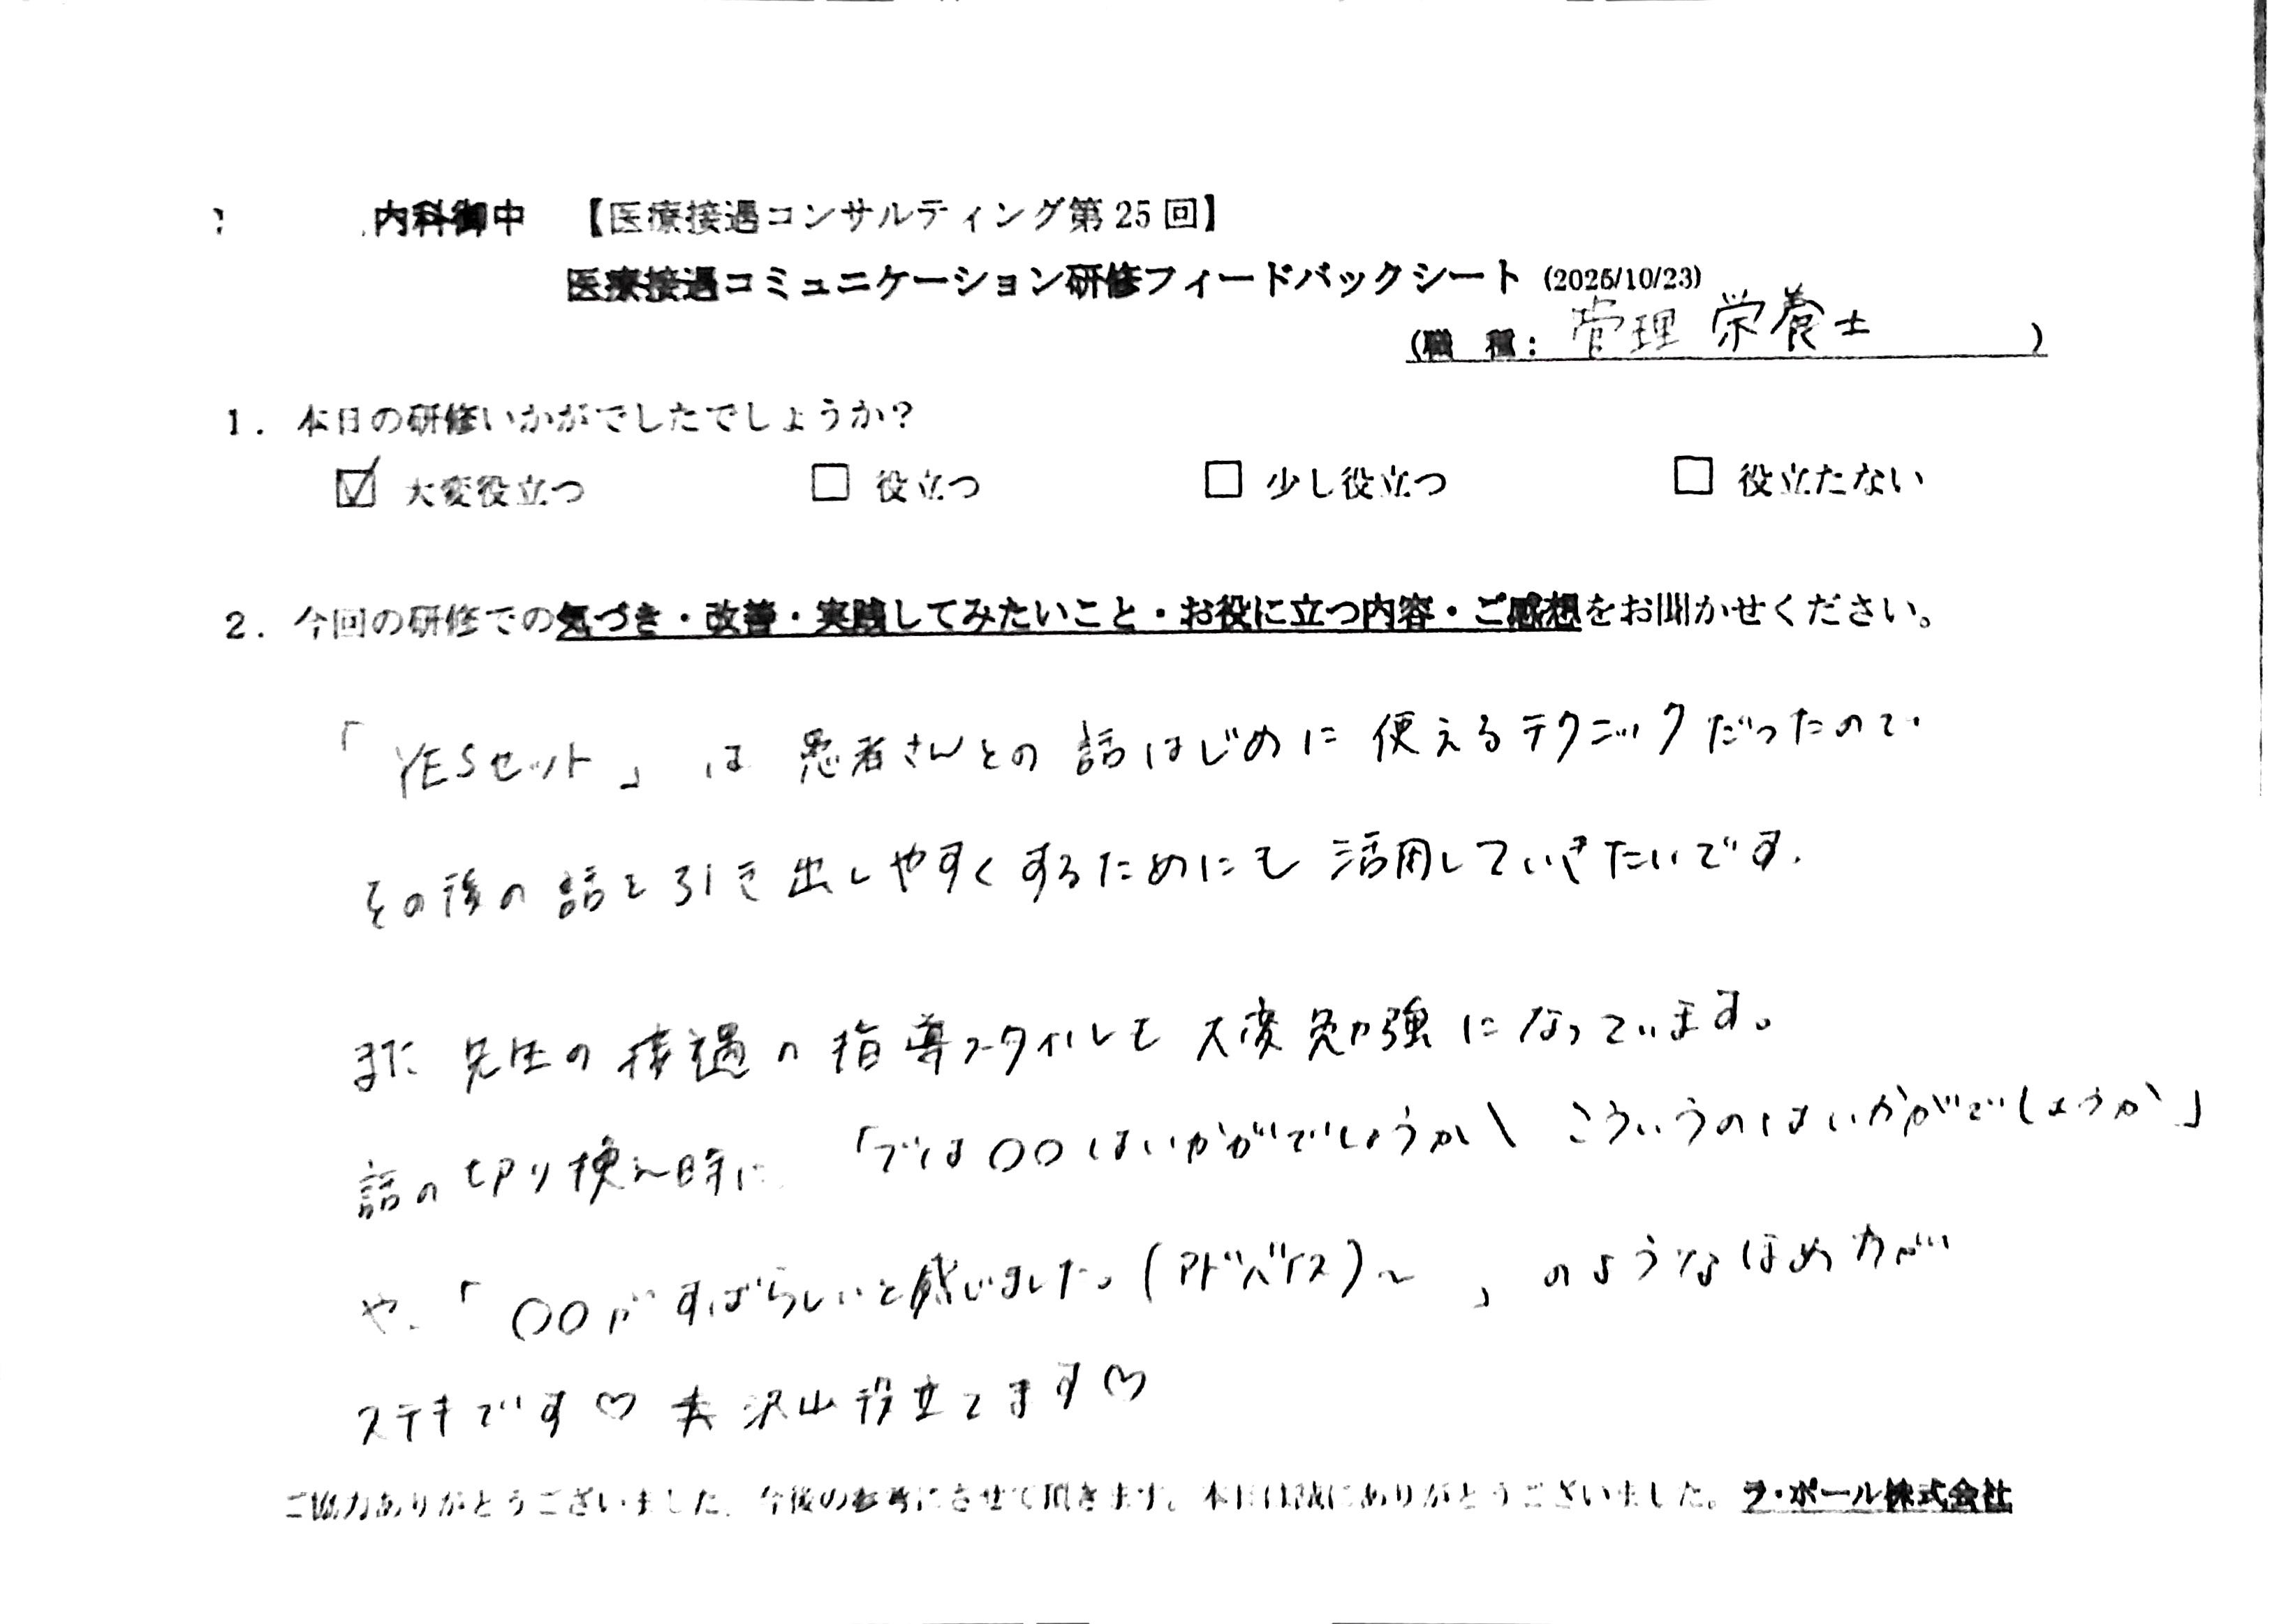 内科御中 【医療接遇コンサルティング第25回】
医療接遇コミュニケーション研修フィードバックシート (2025/10/23)
(職 種: 管理栄養士 )
1. 本日の研修いかがでしたでしょうか?
☑ 大変役立つ □ 役立つ □ 少し役立つ □ 役立たない
2. 今回の研修での気づき・改善・実践してみたいこと・お役に立つ内容・ご感想をお聞かせください。
「YESセット」は 患者さんとの 話はじめに 使えるテクニックだったので
その後の 話を引き出しやすくするためにも 活用していきたいです。
また 先生の 接遇の 指導スタイルも 大変勉強になっています。
話の切り換え時に 「では〇〇はいかがでしょうか\ こういうのはいかがでしょうか」
や、「〇〇がすばらしいと感じました。(アドバイス)〜 」のようなほめ方が
ステキです♡ 沢山役立てます♡
ご協力ありがとうございました。今後の参考にさせて頂きます。本日は誠にありがとうございました。ラ・ポール株式会社